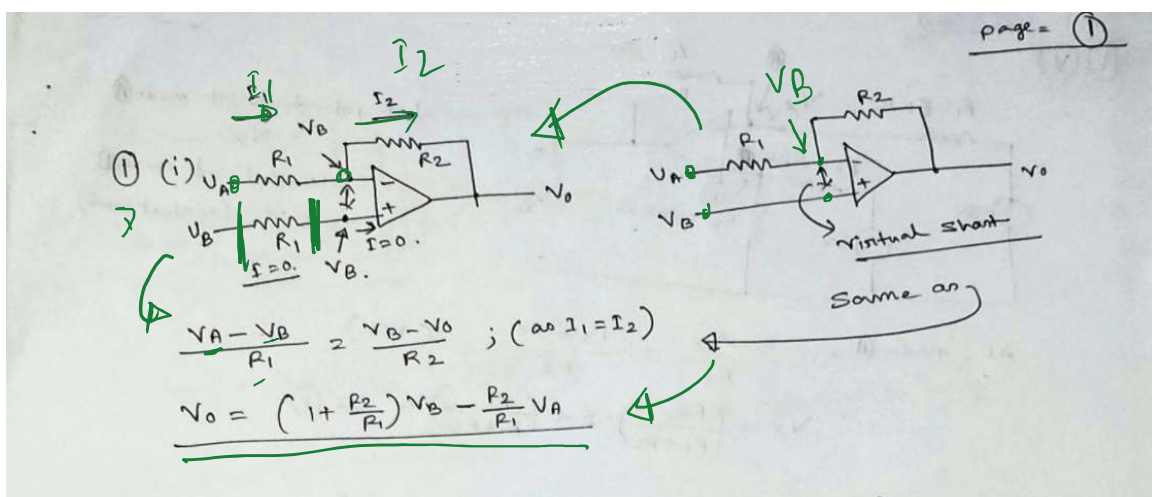 page = ①
I2
I1
I2
VB
① (i) VA
R1
R2
-
+
Vo
VB
R1
I=0.
I=0.
VB.
VB
R2
R1
VA
VB
-
+
Vo
virtual short
Same as
(VA - VB)/R1 = (VB - Vo)/R2 ; (as I1 = I2)
Vo = (1 + R2/R1) VB - R2/R1 VA